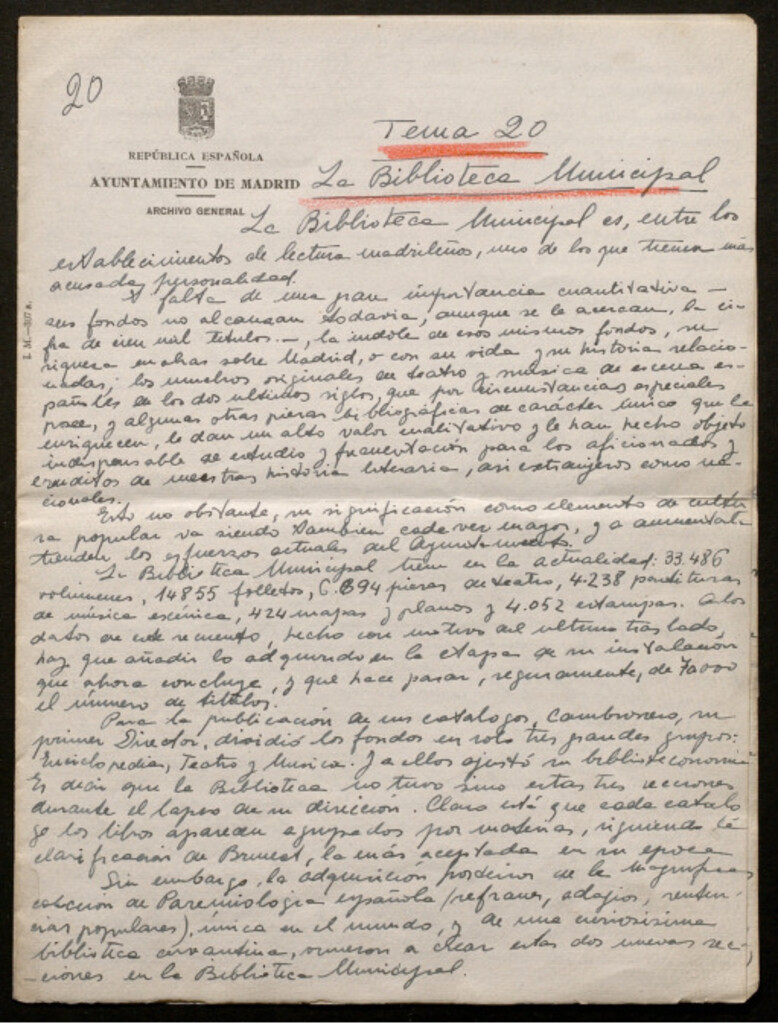 20
Tema 20
REPÚBLICA ESPAÑOLA
AYUNTAMIENTO DE MADRID
La Biblioteca Municipal
ARCHIVO GENERAL
La Biblioteca Municipal es, entre los
establecimientos de lectura madrileños, uno de los que tienen más
acusada personalidad.
A falta de una gran importancia cuantitativa —
sus fondos no alcanzan todavía, aunque se le acercan, la ci-
fra de cien mil títulos.—, la índole de esos mismos fondos, su
riqueza en obras sobre Madrid, o con su vida y su historia relacio-
nadas; los muchos originales de teatro y música de escena es-
pañoles en los dos ultimos siglos, que por circunstancias especiales
posee, y algunas otras piezas bibliográficas de carácter único que la
enriquecen, le dan un alto valor cualitativo y le han hecho objeto
indispensable de estudio y frecuentación para los aficionados y
eruditos de nuestra historia literaria, asi extranjeros como na-
cionales.
Esto no obstante, su significación como elemento de cultu-
ra popular va siendo tambien cada vez mayor, y a aumentarla
tienden los esfuerzos actuales del Ayuntamiento.
La Biblioteca Municipal tiene en la actualidad: 33.486
volúmenes, 14855 folletos, 6.894 piezas de teatro, 4.238 partituras
de música escénica, 424 mapas y planos y 4.052 estampas. A los
datos de este recuento, hecho con motivo del ultimo traslado,
hay que añadir lo adquirido en la etapa de su instalación
que ahora concluye, y que hace pasar, seguramente, de 70000
el número de títulos.
Para la publicación de sus catalogos, Cambronero, su
primer Director, dividió los fondos en solo tres grandes grupos:
Enciclopedia, Teatro y Musica. Y a ellos ajustó su biblioteconomia
Es decir que la Biblioteca no tuvo sino estas tres secciones
durante el lapso de su direccion. Claro está que cada catalo
go los libros aparecen agrupados por materias, siguiendo la
clasificación de Brunet, la más aceptada en su epoca
Sin embargo, la adquisición posterior de la magnifica
colección de Paremiologia española (refranes, adagios, senten-
cias populares), única en el mundo, y de una curiosisima
biblioteca cervantina, vinieron a crear estas dos nuevas sec-
ciones en la Biblioteca Municipal.